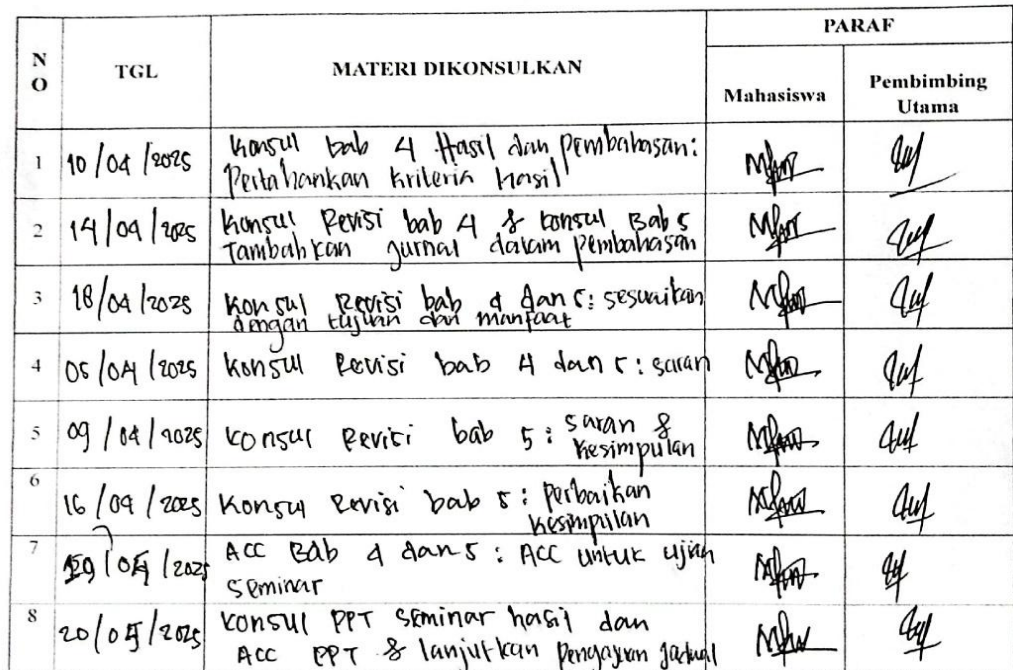 NO TGL MATERI DIKONSULKAN PARAF
Mahasiswa Pembimbing Utama
1 10/04/2025 Konsul bab 4 Hasil dan pembahasan:
Pertahankan kriteria hasil
2 14/04/2025 Konsul Revisi bab 4 & konsul Bab 5
Tambahkan jurnal dalam pembahasan
3 18/04/2025 Konsul Revisi bab 4 dan 5: sesuaikan
dengan tujuan dan manfaat
4 05/04/2025 Konsul Revisi bab 4 dan 5: saran
5 09/04/2025 Konsul Revisi bab 5: saran &
kesimpulan
6 16/04/2025 Konsul Revisi bab 5: perbaikan
kesimpulan
7 /2025 ACC Bab 4 dan 5: ACC untuk ujian
seminar
8 20/05/2025 Konsul PPT seminar hasil dan
ACC PPT & lanjutkan pengajuan jadwal